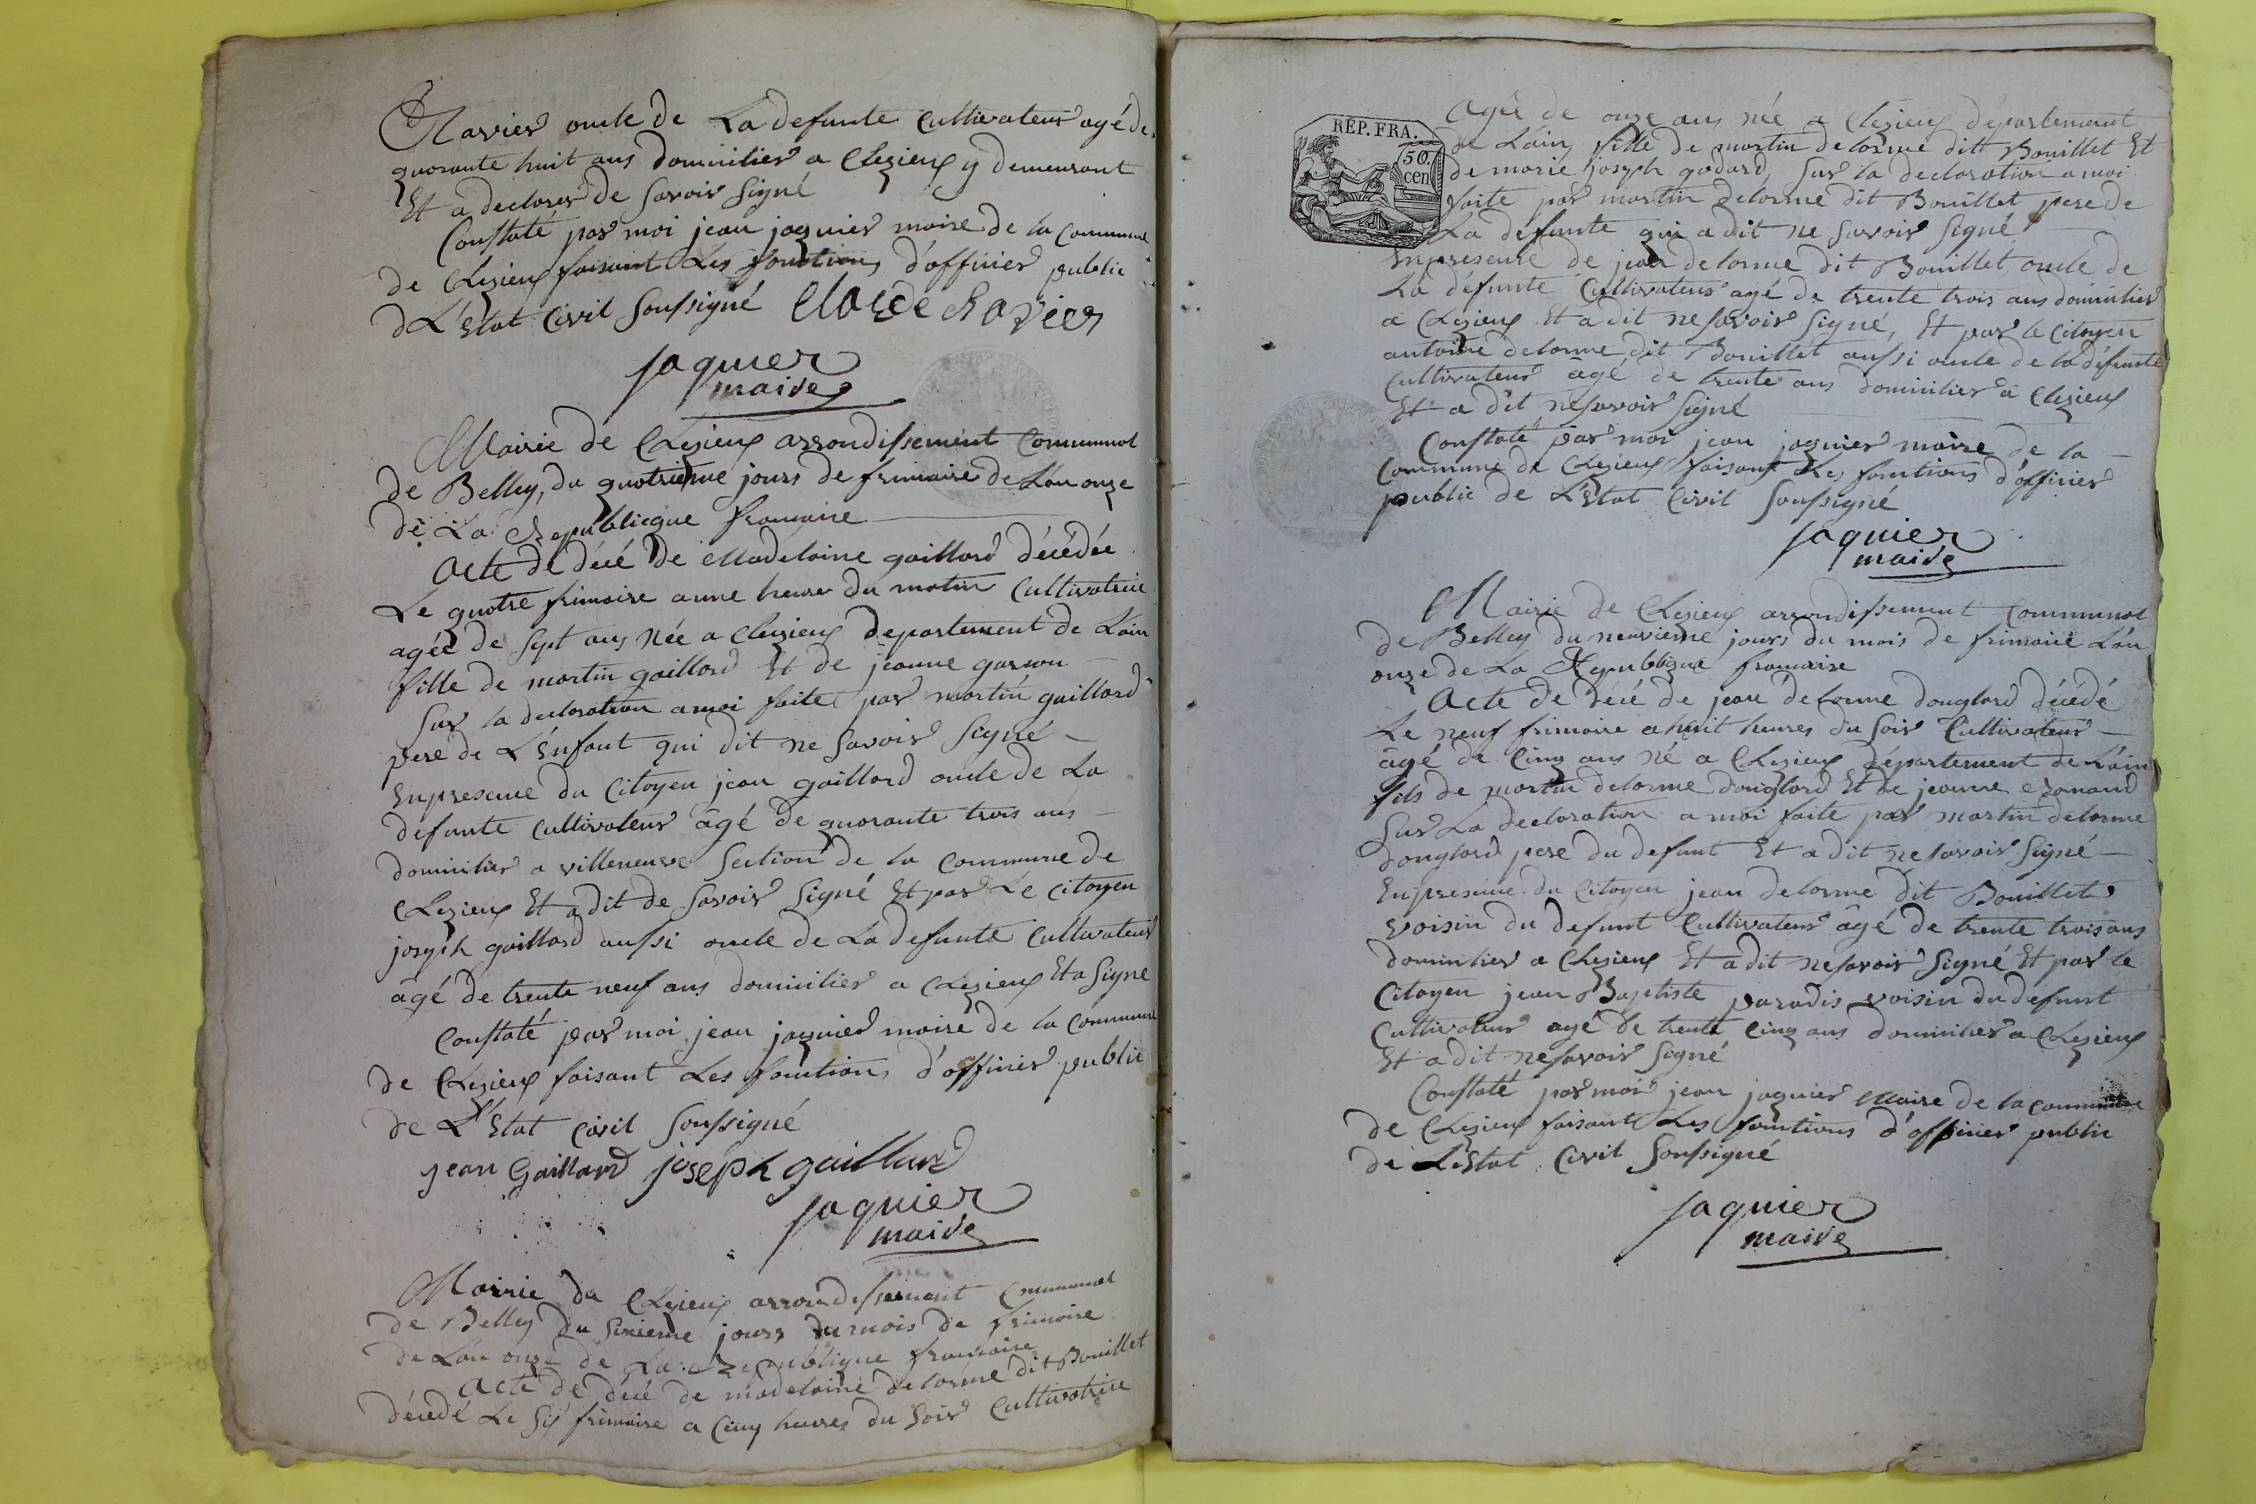 Ravier oncle de La defunte Cultivateur agé de
quarante huit ans domicilier a Clezieux y demeurant
Et a declarer de Savoir Signé
Constaté par moi jean jaquier maire de la Commune
de Clezieux faisant Les fonctions d'officier public
de L'Etat Civil Soussigné Claude Ravier
jaquier
maire
Mairie de Clezieux arrondissement Communal
de Belley, du quatrieme jours de frimaire de L'an onze
de La Republicque francaire
Acte de décé de Madelaine gaillard décédée
Le quatre frimaire a une heure du matin Cultivatrice
agée de sept ans Née a Cleizieux departement de Lain
fille de martin gaillard Et de jeanne garson
Sur la declaration a moi faite par martin gaillard
pere de L'Enfant qui dit ne Savoir Signé
En presence du Citoyen jean gaillard oncle de La
defunte Cultivateur âgé de quarante trois ans
domicilier a villeneuve Section de la Commune de
Clezieux Et a dit de Savoir Signé Et par Le citoyen
joseph gaillard aussi oncle de La defunte Cultivateur
âgé de trente neuf ans domicilier a Clezieux Et a Signe
Constaté par moi jean jaquier maire de la Commune
de Clezieux faisant Les fonctions d'officier public
de L'Etat Civil Soussigné
jean Gaillard joseph gaillard
jaquier
maire
Mairie de Clezieux arrondissement Communal
de Belley du Sixieme jours du mois de frimaire
de L'an onze de La Republique francaire
Acte de décé de madelaine delorme dit Bouillet
décédé Le Six frimaire a Cinq heures du Soir Cultivatrice
RÉP. FRA.
50.
cen
Agée de onze ans née a Clezieux département
de Lain, fille de martin delorme dit Bouillet Et
de marie joseph godard, Sur la declaration a moi
faite par martin delorme dit Bouillet pere de
La defunte qui a dit ne Savoir Signé
En presence de jean delorme dit Bouillet, oncle de
La défunte Cultivateur agé de trente trois ans domicilier
a Clezieux Et a dit ne Savoir Signé, Et par le Citoyen
antoine delorme dit Bouillet aussi oncle de la défunte
Cultivateur âgé de trente ans domicilier a Clezieux
Et a dit ne Savoir Signé
Constaté par moi jean jaquier maire de la
Commune de Clezieux faisant Les fonctions d'officier
public de L'Etat Civil Soussigné
jaquier
maire
Mairie de Clezieux arrondissement Communal
de Belley du neuvieme jours du mois de frimaire L'an
onze de La Republique francaire
Acte de décé de jean delorme donglard décédé
Le neuf frimaire a huit heures du Soir Cultivateur
âgé de Cinq ans Né a Clezieux département de L'ain
fils de martin delorme donglard Et de jeanne
Sur La declaration a moi faite par martin delorme
donglard pere du defunt Et a dit ne Savoir Signé
En presence du Citoyen jean delorme dit Bouillet
voisin du defunt Cultivateur âgé de trente trois ans
domicilier a Clezieux Et a dit ne Savoir Signé Et par le
Citoyen jean Baptiste paradis voisin du defunt
Cultivateur agé de trente Cinq ans domicilier a Clezieux
Et a dit ne Savoir Signé
Constaté par moi jean jaquier Maire de la Commune
de Clezieux faisant Les fonctions d'officier public
de L'Etat Civil Soussigné
jaquier
maire